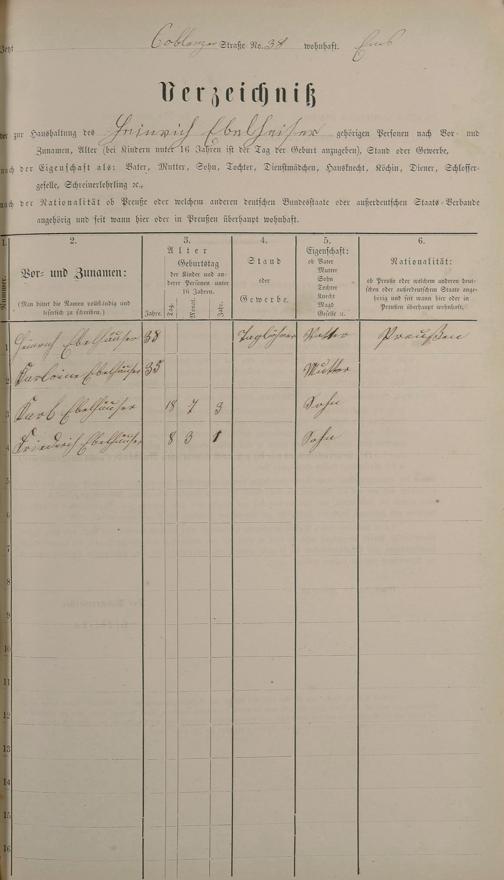 Jetzt Coblenzer Straße No. 38 wohnhaft. Ems
Verzeichniß
der zur Haushaltung des Heinrich Ebelheiser gehörigen Personen nach Vor- und
Zunamen, Alter (bei Kindern unter 16 Jahren ist der Tag der Geburt anzugeben), Stand oder Gewerbe,
nach der Eigenschaft als: Vater, Mutter, Sohn, Tochter, Dienstmädchen, Hausknecht, Köchin, Diener, Schlosser-
geselle, Schreinerlehrling ꝛc.,
nach der Nationalität ob Preuße oder welchem anderen deutschen Bundesstaate oder außerdeutschen Staats-Verbande
angehörig und seit wann hier oder in Preußen überhaupt wohnhaft.
1. 2. 3. 4. 5. 6.
Nummer.
Vor- und Zunamen:
(Man bittet die Namen vollständig und
leserlich zu schreiben.)
Alter
Jahre.
Geburtstag
der Kinder und an-
derer Personen unter
16 Jahren.
Tag. Monat. Jahr.
Stand
oder
Gewerbe.
Eigenschaft:
ob Vater
Mutter
Sohn
Tochter
Knecht
Magd
Geselle ꝛc.
Nationalität:
ob Preuße oder welchem anderen deut-
schen oder außerdeutschen Staate ange-
hörig und seit wann hier oder in
Preußen überhaupt wohnhaft.
1 Heinrich Ebelhäuser 38 Taglöhner Vatter Preußen
2 Karloine Ebelhäuser 35 Mutter
3 Karl Ebelhäuser 18 7 3 Sohn
4 Friedrich Ebelhäuser 8 3 1 Sohn
5
6
7
8
9
10
11
12
13
14
15
16